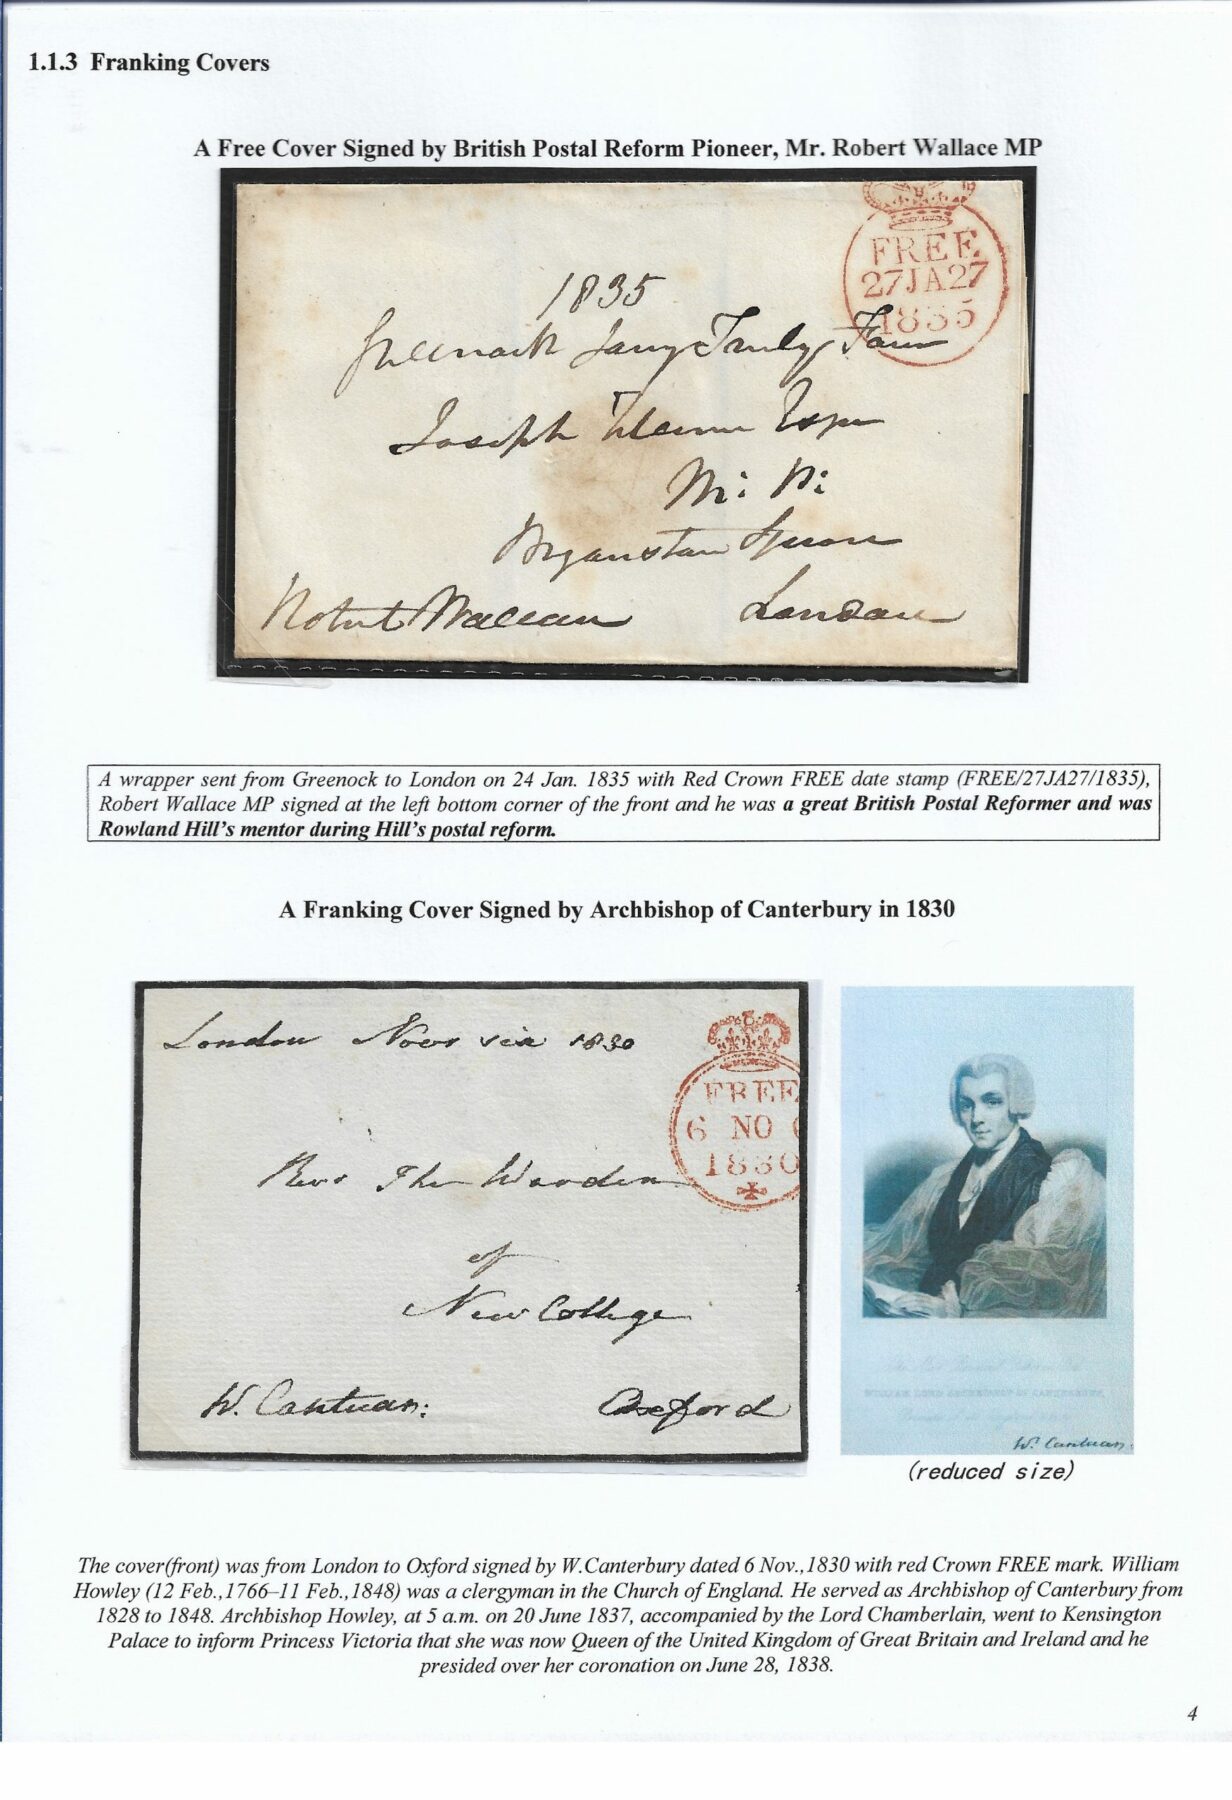 1.1.3 Franking Covers
A Free Cover Signed by British Postal Reform Pioneer, Mr. Robert Wallace MP
FREE
27JA27
1835
1835
Greenock Jany Twenty Four
Joseph Hume Esqr
M: P:
Bryanston Square
Robert Wallace London
A wrapper sent from Greenock to London on 24 Jan. 1835 with Red Crown FREE date stamp (FREE/27JA27/1835),
Robert Wallace MP signed at the left bottom corner of the front and he was a great British Postal Reformer and was
Rowland Hill's mentor during Hill's postal reform.
A Franking Cover Signed by Archbishop of Canterbury in 1830
London Novr six 1830
FREE
6 NO 6
1830
Revd The Warden
of
New College
W. Cantuar: Oxford
WILLIAM LORD ARCHBISHOP OF CANTERBURY,
W. Cantuar.
(reduced size)
The cover(front) was from London to Oxford signed by W.Canterbury dated 6 Nov.,1830 with red Crown FREE mark. William
Howley (12 Feb.,1766–11 Feb.,1848) was a clergyman in the Church of England. He served as Archbishop of Canterbury from
1828 to 1848. Archbishop Howley, at 5 a.m. on 20 June 1837, accompanied by the Lord Chamberlain, went to Kensington
Palace to inform Princess Victoria that she was now Queen of the United Kingdom of Great Britain and Ireland and he
presided over her coronation on June 28, 1838.
4